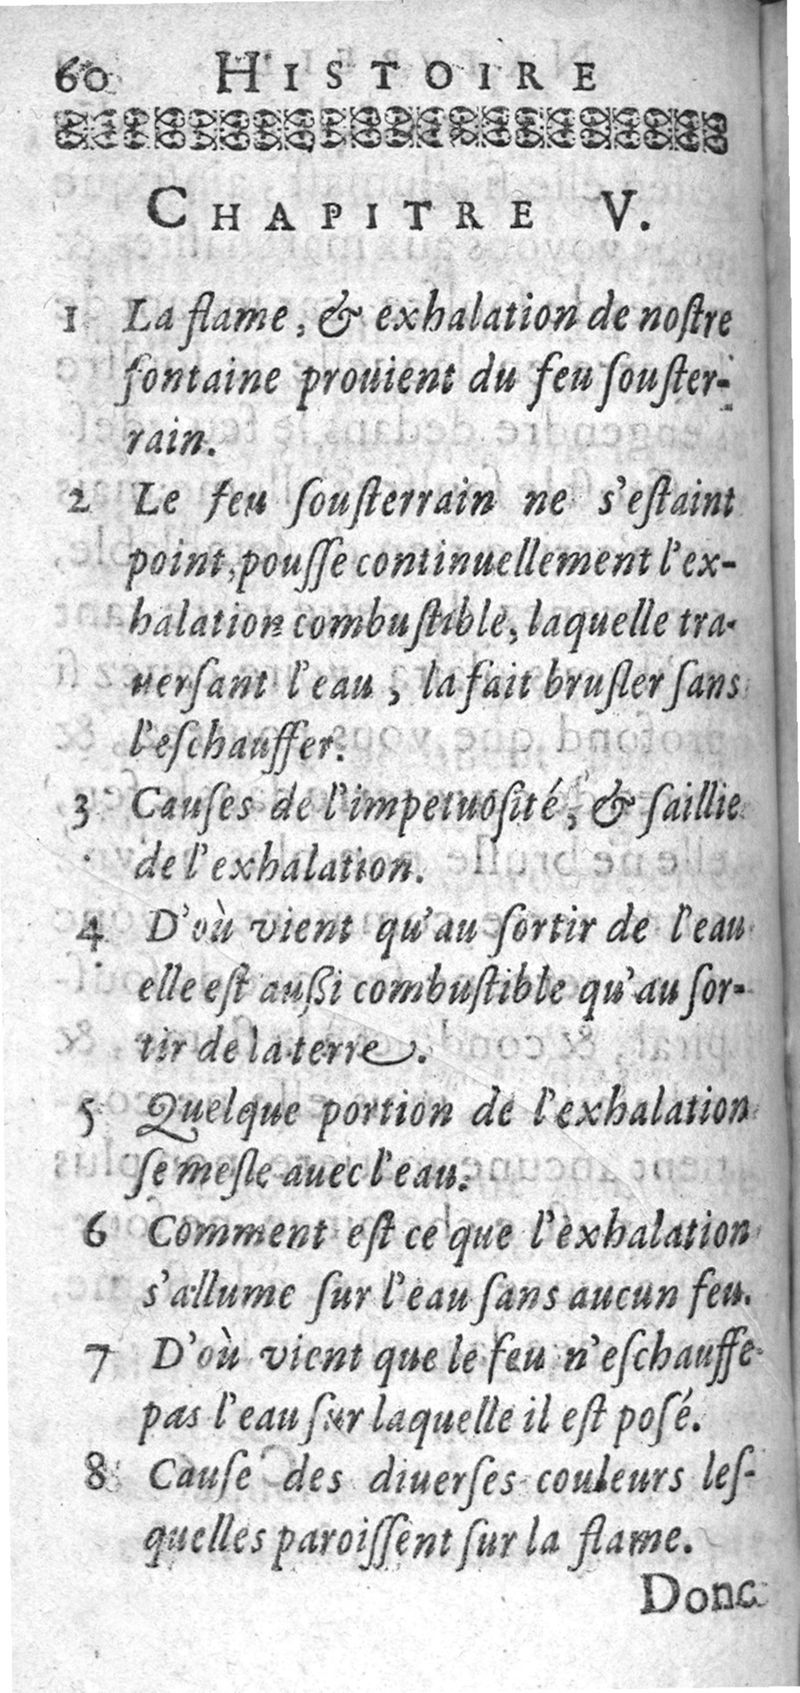 60 HISTOIRE
CHAPITRE V.
1 La flame, & exhalation de noſtre
fontaine prouient du feu ſouſter-
rain.
2 Le feu ſouſterrain ne s'eſtaint
point, pouſſe continuellement l'ex-
halation combuſtible, laquelle tra-
uerſant l'eau, la fait bruſler ſans
l'eſchauffer.
3 Cauſes de l'impetuoſité, & ſaillie
de l'exhalation.
4 D'où vient qu'au ſortir de l'eau
elle eſt außi combuſtible qu'au ſor-
tir de la terre.
5 Quelque portion de l'exhalation
ſe meſle auec l'eau.
6 Comment eſt ce que l'exhalation
s'allume ſur l'eau ſans aucun feu.
7 D'où vient que le feu n'eſchauffe
pas l'eau ſur laquelle il eſt poſé.
8 Cauſe des diuerſes couleurs leſ-
quelles paroiſſent ſur la flame.
Donc